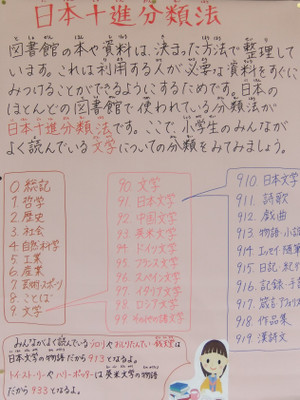 日本十進分類法
図書館の本や資料は、決まった方法で整理して
います。これは利用する人が必要な資料をすぐに
みつけることができるようにするためです。日本の
ほとんどの図書館で使われている分類法が
日本十進分類法です。ここで、小学生のみんなが
よく読んでいる文学についての分類をみてみましょう。
0 総記
1 哲学
2 歴史
3 社会
4 自然科学
5 工業
6 産業
7 芸術・スポーツ
8 ことば
9 文学
90 文学
91 日本文学
92 中国文学
93 英米文学
94 ドイツ文学
95 フランス文学
96 スペイン文学
97 イタリア文学
98 ロシア文学
99 その他の諸文学
910 日本文学
911 詩歌
912 戯曲
913 物語・小説
914 エッセイ 随筆
915 日記・紀行
916 記録・手記
917 箴言
918 作品集
919 漢詩文
みんながよく読んでいる
日本文学の物語だから913となるよ。
トイ・ストーリーやハリー・ポッターは英米文学の物語
だから933となるよ。